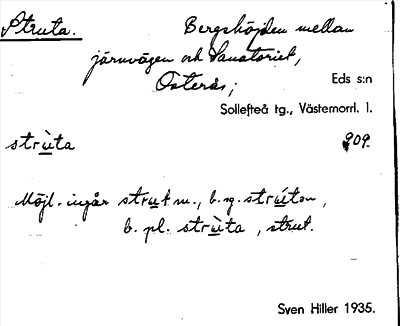 Struta. Bergshöjden mellan
järnvägen och Sanatoriet,
Österås; Eds s:n
Sollefteå tg., Västernorrl. l.
strùta 909.
Möjl. ingår strut m., b. sg. strúten,
b. pl. strùta, strut.
Sven Hiller 1935.